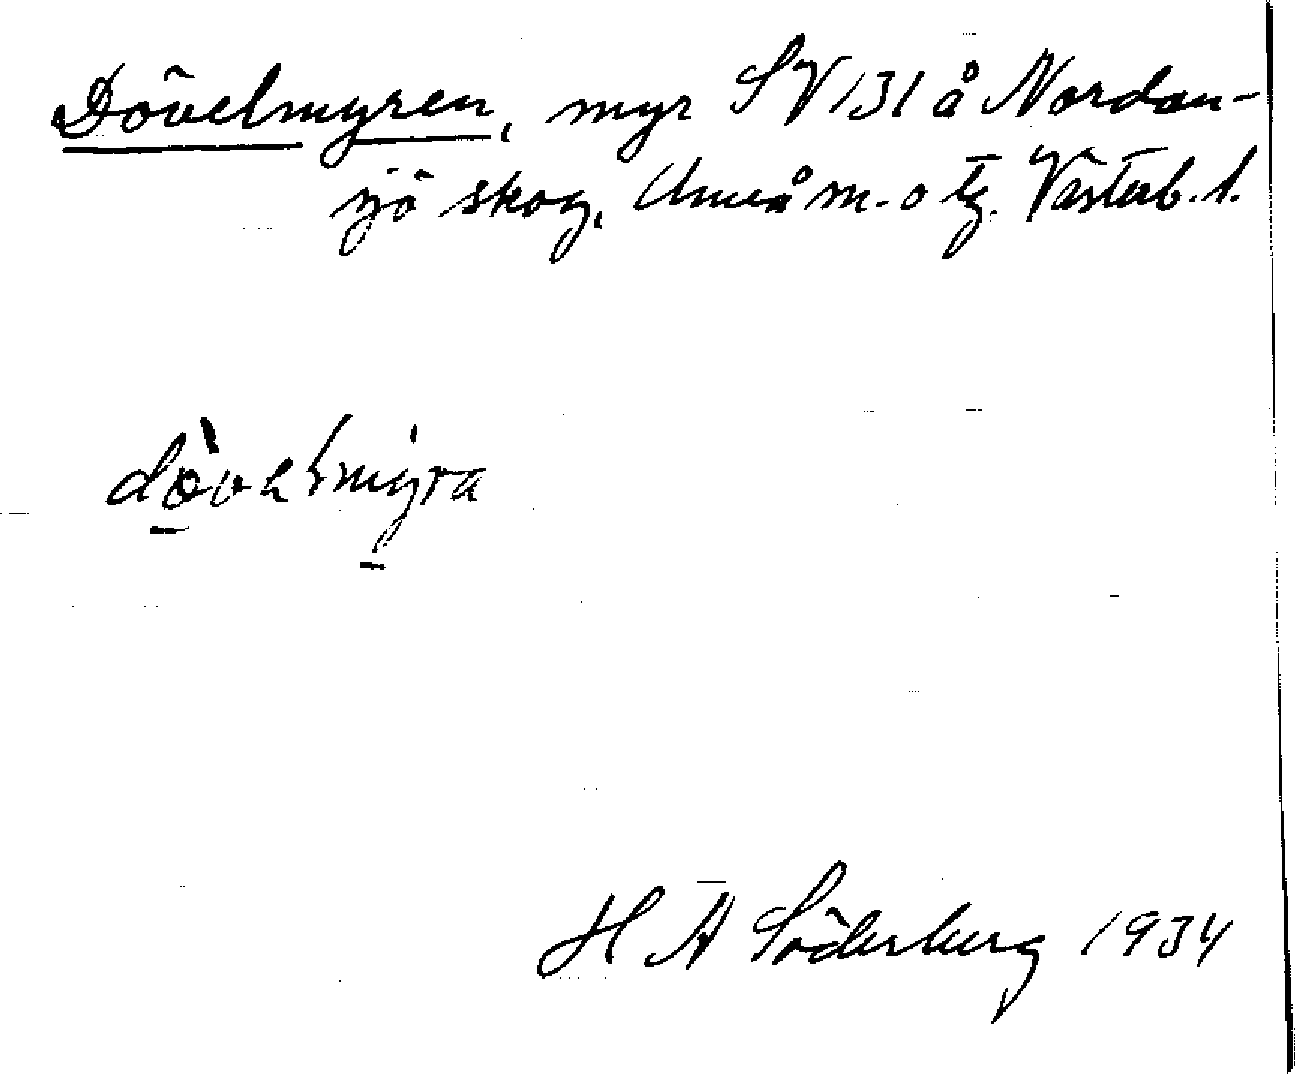 Dövelmyren, myr SV 131 å Nordan-
sjö skog, Umeå m. o tg. Västerb. l.
dövelmyra
H Ä Söderberg 1934